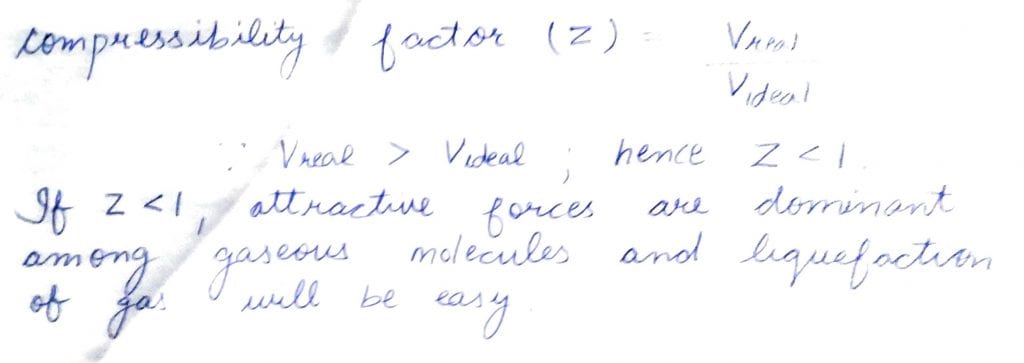 compressibility factor (Z) = Vreal
Videal
∵ Vreal > Videal ; hence Z < 1.
If Z < 1, attractive forces are dominant
among gaseous molecules and liquefaction
of gas will be easy.